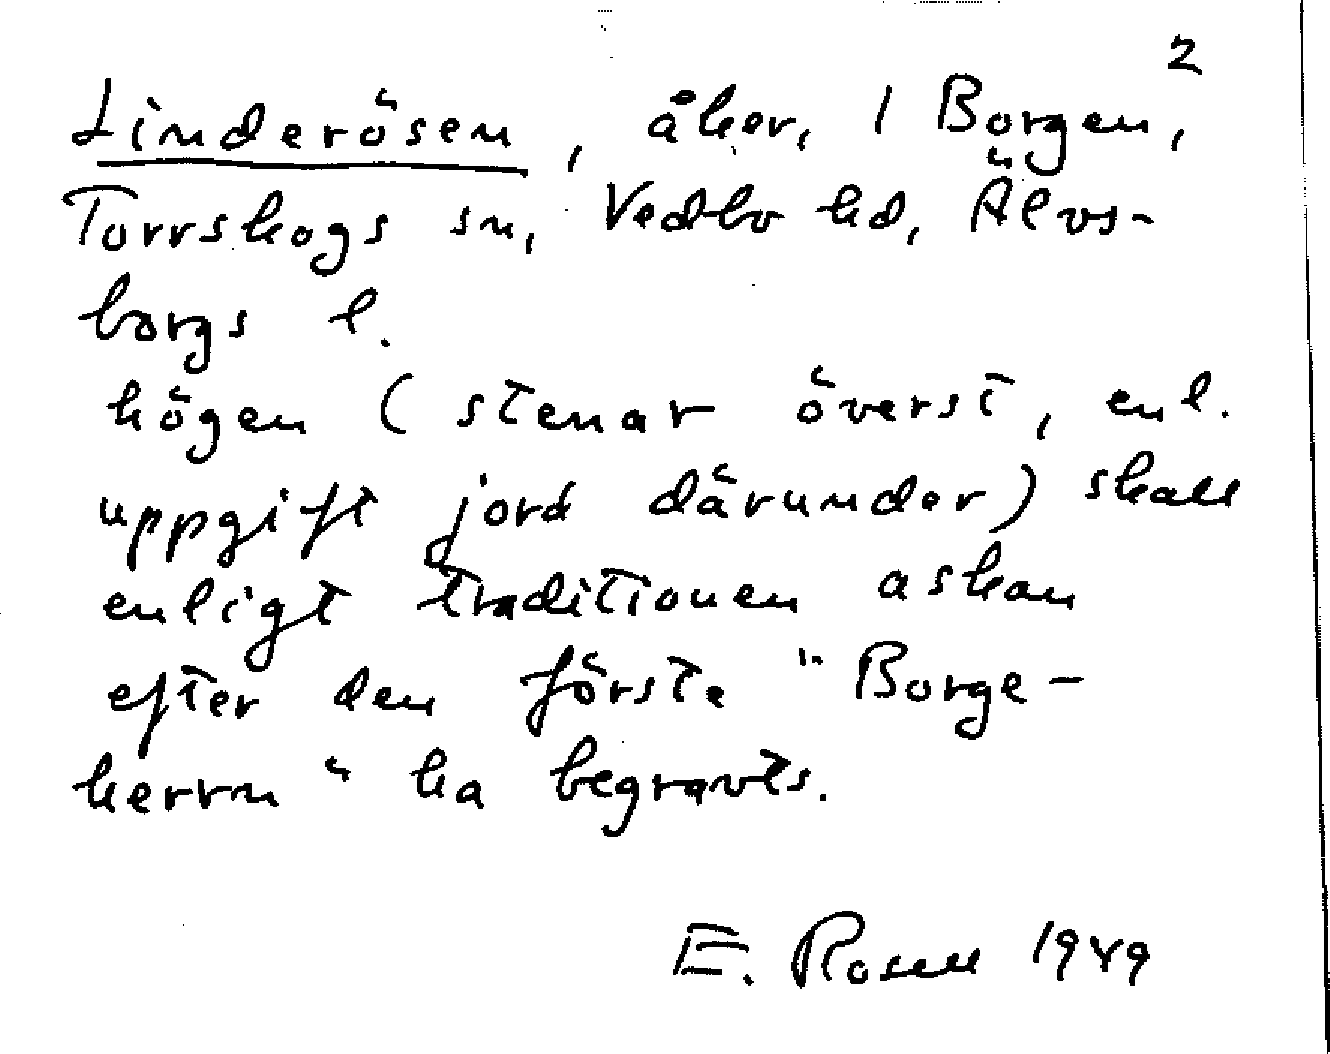 2
Linderösen, åker, 1 Borgen,
Torrskogs sn, Vedbo hd, Älvs-
borgs l.
högen (stenar överst, enl.
uppgift jord därunder) skall
enligt traditionen askan
efter den förste "Borge-
herrn" ha begravts.
E. Rosell 1949